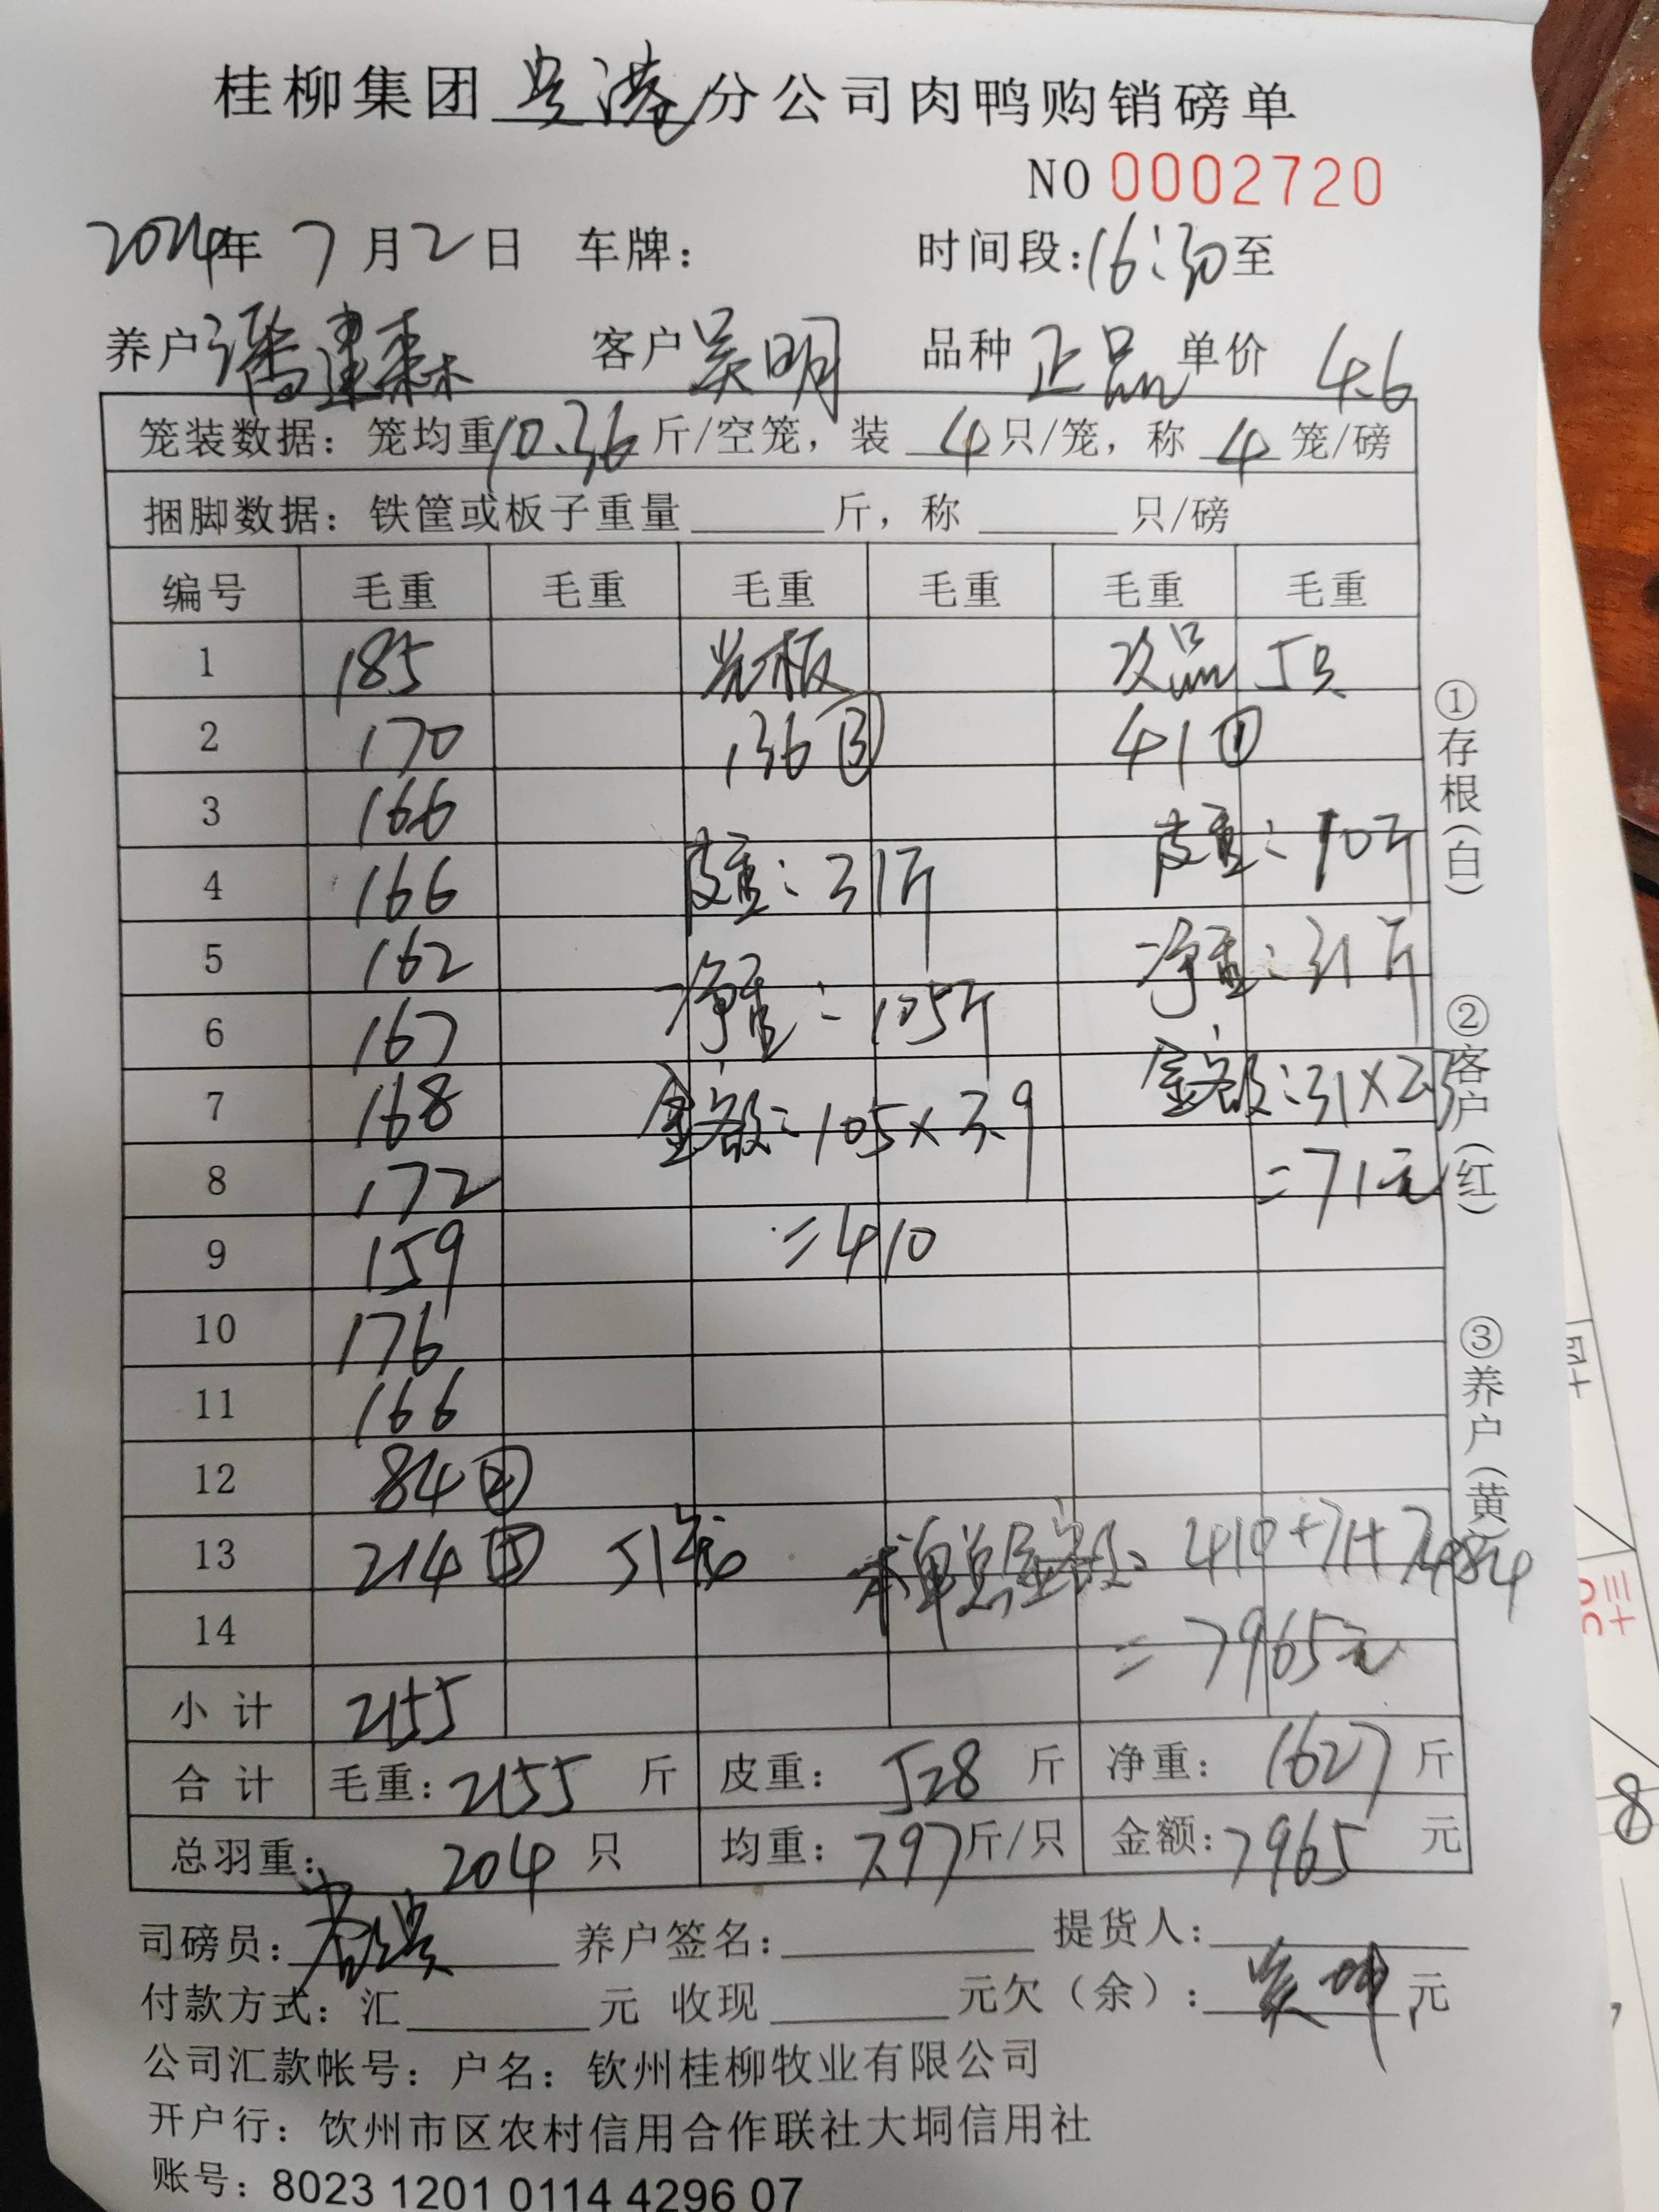 桂柳集团贵港分公司肉鸭购销磅单
NO 0002720
2024年 7月2日 车牌： 时间段：16:30至
养户潘建森 客户吴明 品种正品 单价 4.6
笼装数据：笼均重10.36斤/空笼，装 4只/笼，称 4 笼/磅
捆脚数据：铁筐或板子重量______斤，称______只/磅
编号 毛重 毛重 毛重 毛重 毛重 毛重
1 185 光板 次品 5只
2 170 136③ 41①
3 166
4 166 皮重：31斤 皮重：10斤
5 162 净重：31斤
6 167 净重：105斤
7 168 金额：105×3.9 金额：31×2.3
8 172 =71元
9 159 =410
10 176
11 166
12 84②
13 214⑤ 51笼 本单总金额：410+71+7484
14 =7965元
小计 2155
合计 毛重：2155 斤 皮重：528 斤 净重：1627斤
总羽重： 204 只 均重：7.97斤/只 金额：7965 元
司磅员： 养户签名： 提货人：
付款方式：汇______元 收现______元欠（余）：吴坤元
公司汇款帐号：户名：钦州桂柳牧业有限公司
开户行：钦州市区农村信用合作联社大垌信用社
账号：8023 1201 0114 4296 07
①存根（白）
②客户（红）
③养户（黄）
8